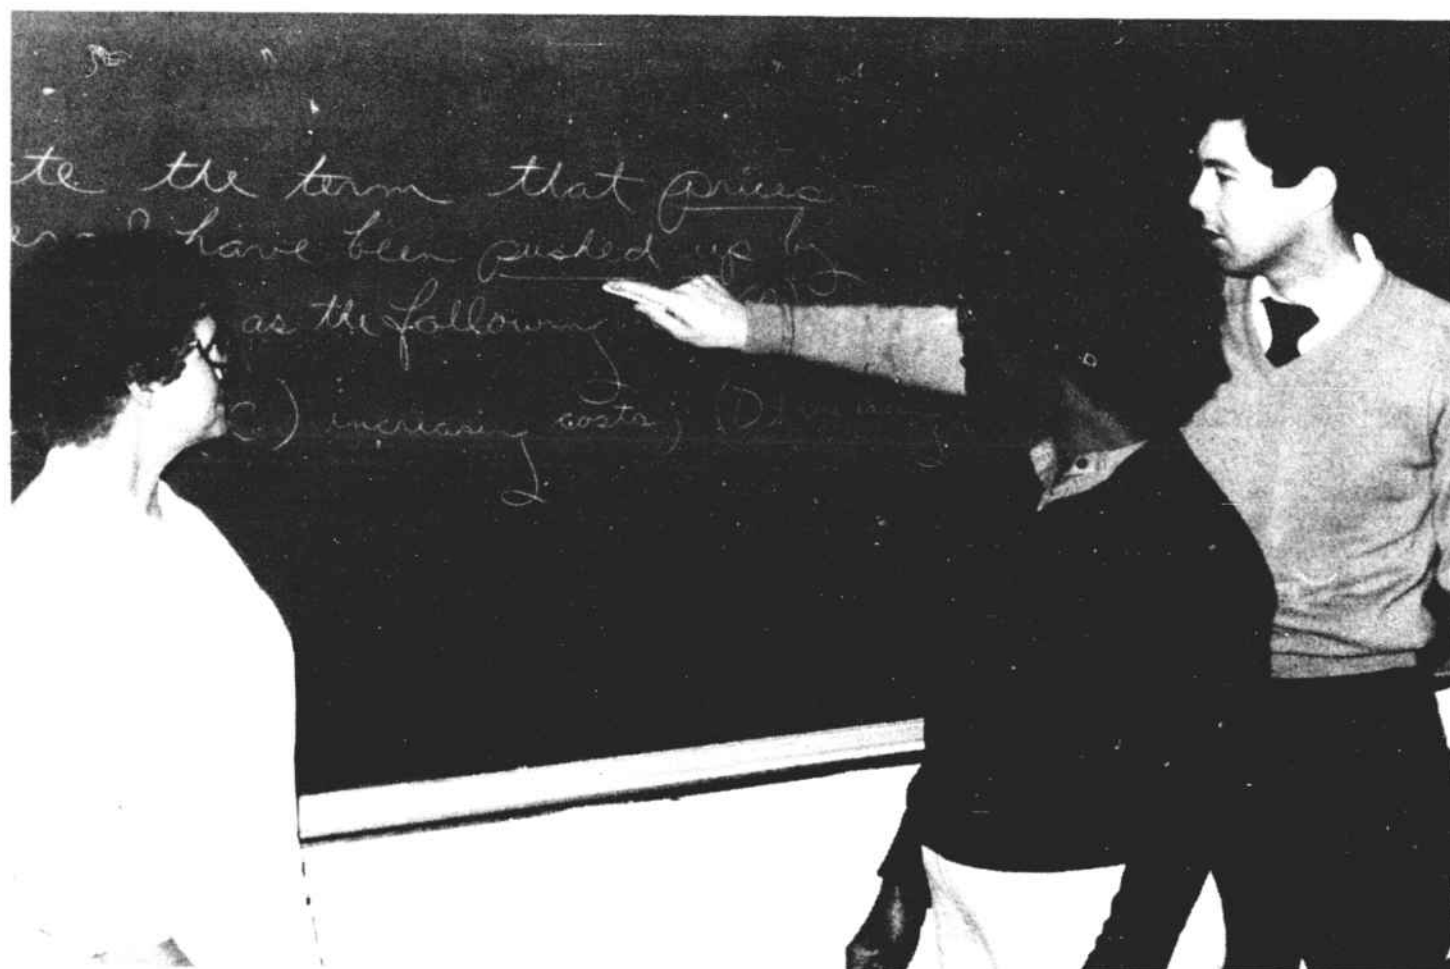 te the term that prices
have been pushed up by
as the following
C.) increasing costs; (D)